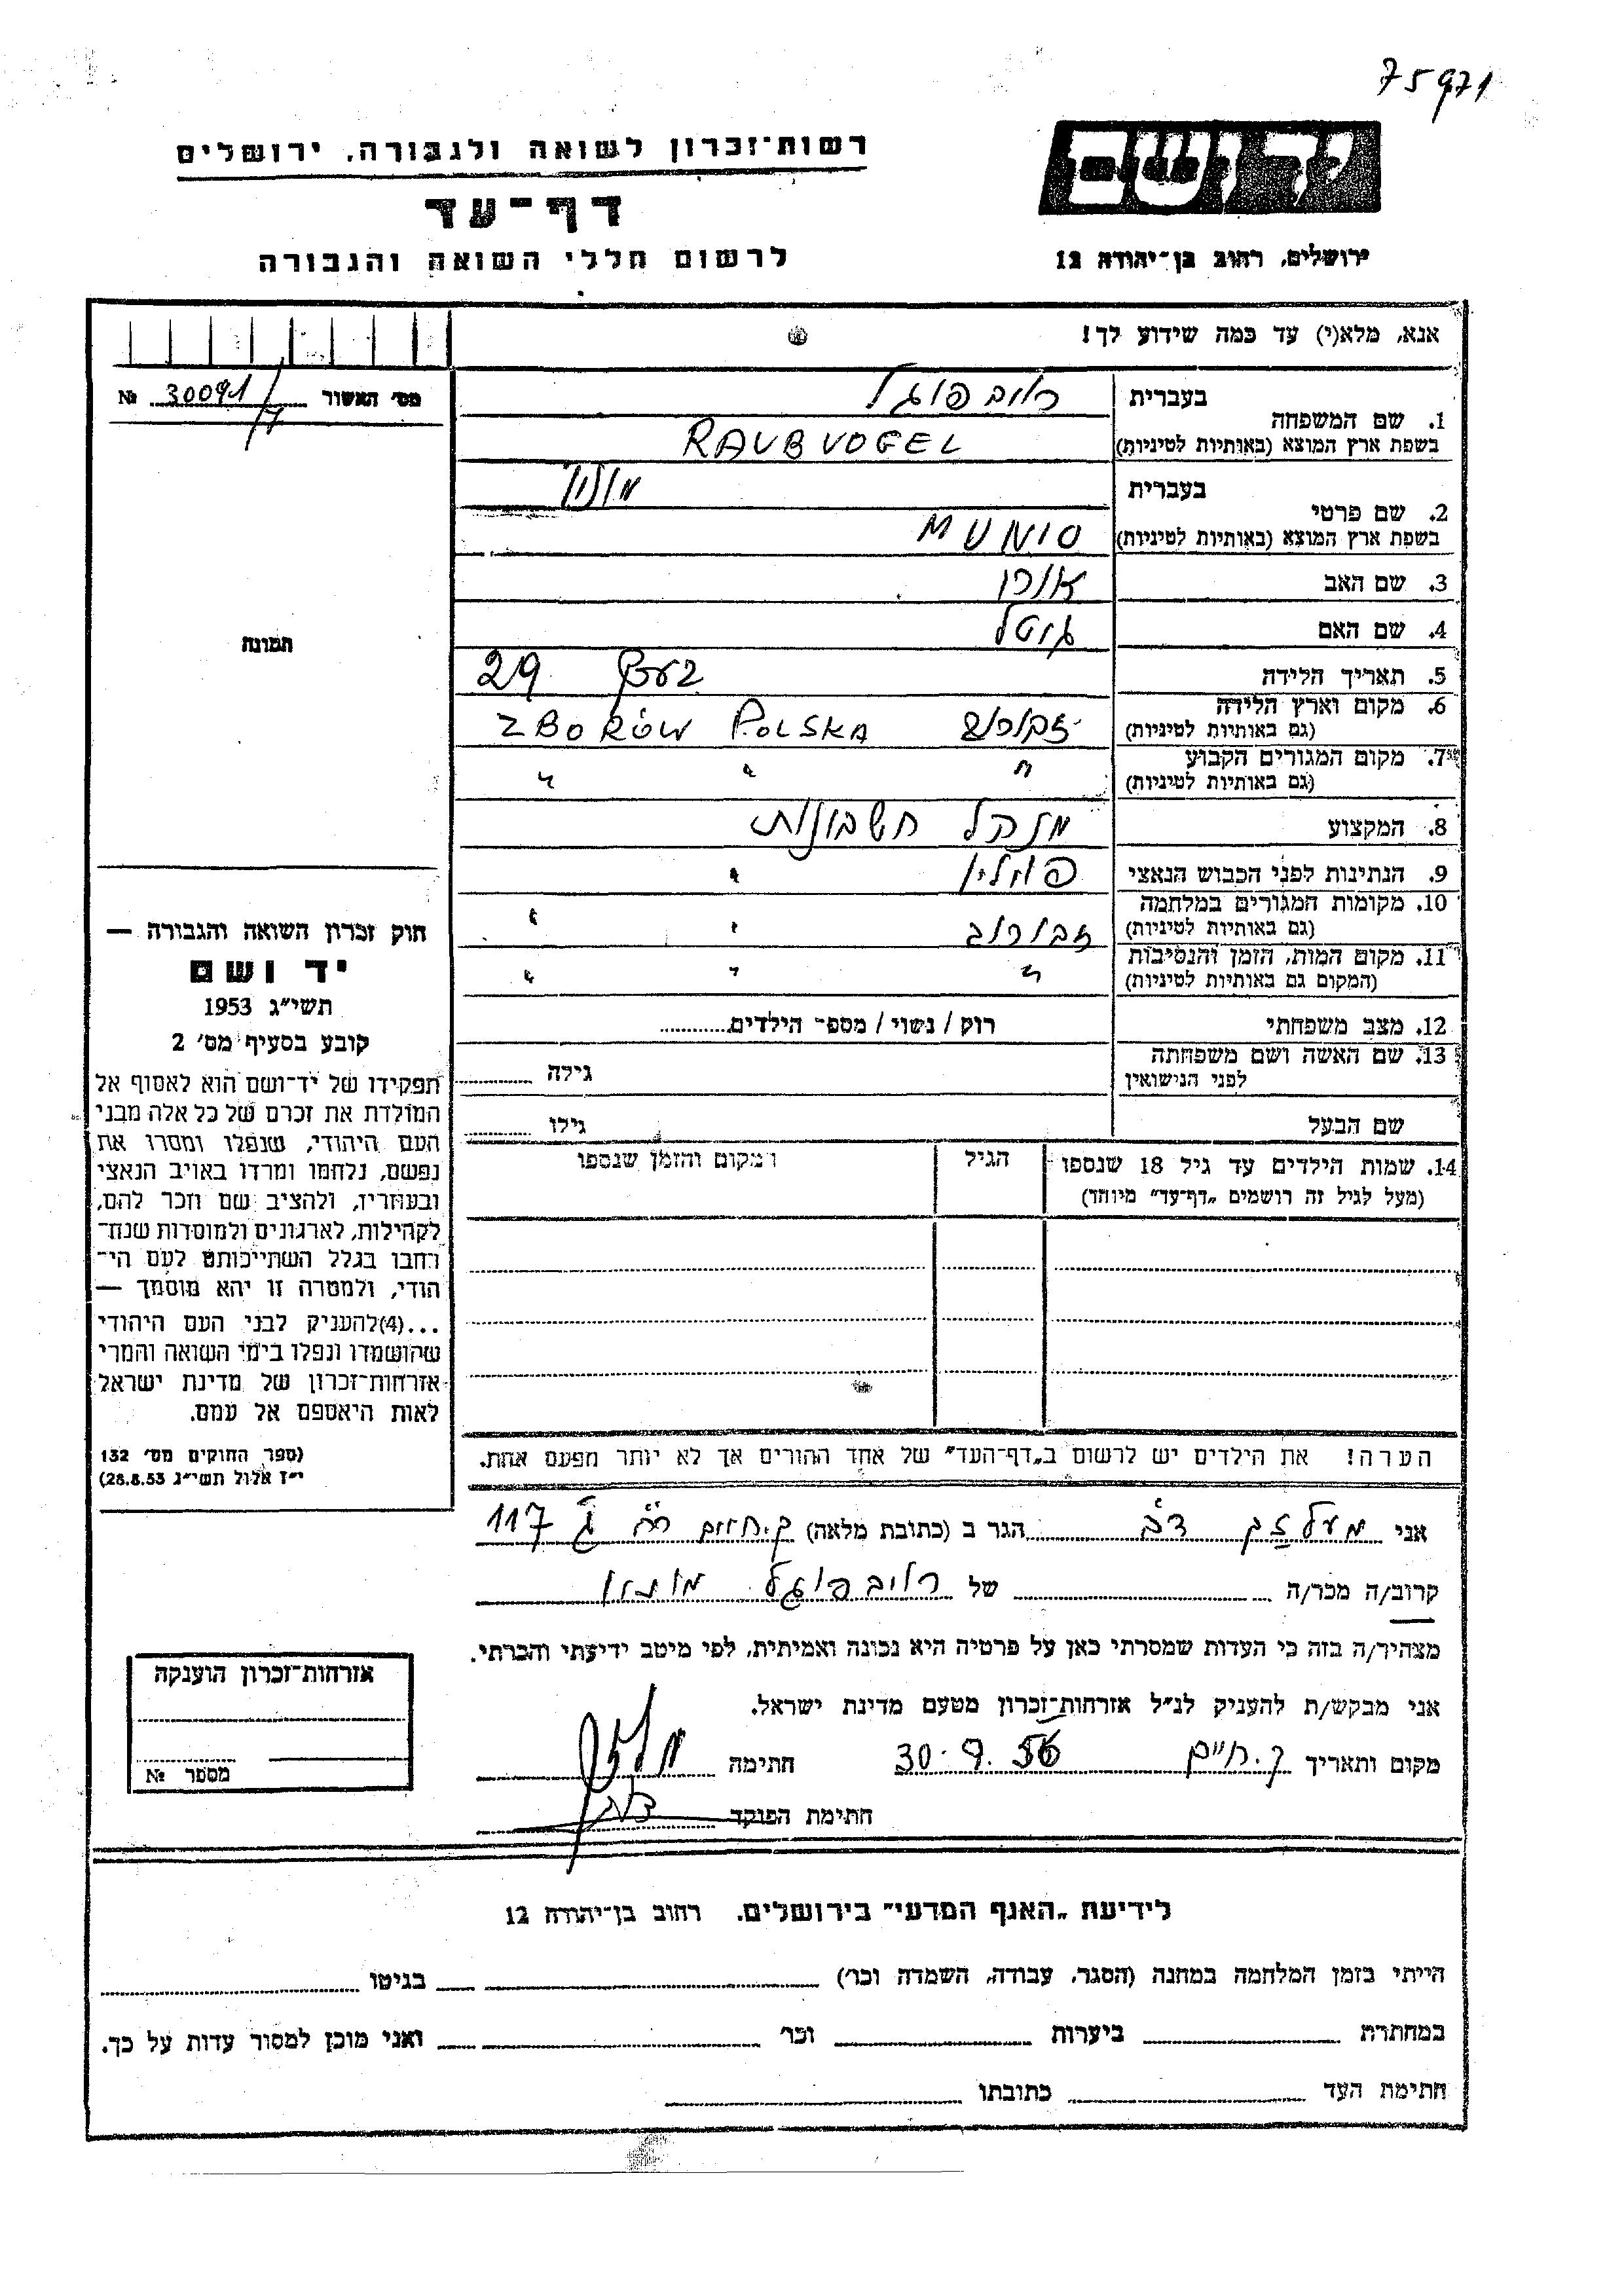 75971
יד ושם
רשות־זכרון לשואה ולגבורה, ירושלים
דף־עד
לרשום חללי השואה והגבורה
ירושלים, רחוב בן־יהודה 12
אנא, מלא(י) עד כמה שידוע לך!
מס' האשור 30091/ №
1. שם המשפחה
בעברית רויבפוגל
בשפת ארץ המוצא (באותיות לטיניות) RAUBVOGEL
2. שם פרטי
בעברית
בשפת ארץ המוצא (באותיות לטיניות) MUNIO
3. שם האב אהרן
4. שם האם גיטל
5. תאריך הלידה 29
6. מקום וארץ הלידה ZBORÓW POLSKA
(גם באותיות לטיניות)
7. מקום המגורים הקבוע " " "
(גם באותיות לטיניות)
8. המקצוע מנהל חשבונות
9. הנתינות לפני הכבוש הנאצי פולין "
10. מקומות המגורים במלחמה זבורוב " "
(גם באותיות לטיניות)
11. מקום המות, הזמן והנסיבות " " "
(המקום גם באותיות לטיניות)
12. מצב משפחתי רוק / נשוי / מספר הילדים
13. שם האשה ושם משפחתה גילה
לפני הנישואין
שם הבעל גילו
14. שמות הילדים עד גיל 18 שנספו הגיל המקום והזמן שנספו
(מעל לגיל זה רושמים „דף־עד" מיוחד)
הערה! את הילדים יש לרשום ב„דף־העד" של אחד ההורים אך לא יותר מפעם אחת.
תמונה
חוק זכרון השואה והגבורה —
יד ושם
תשי"ג 1953
קובע בסעיף מס' 2
תפקידו של יד־ושם הוא לאסוף אל
המולדת את זכרם של כל אלה מבני
העם היהודי, שנפלו ומסרו את
נפשם, נלחמו ומרדו באויב הנאצי
ובעוזריו, ולהציב שם וזכר להם,
לקהילות, לארגונים ולמוסדות שנח־
רחבו בגלל השתייכותם לעם הי־
הודי, ולמטרה זו יהא מוסמך —
...(4)להעניק לבני העם היהודי
שהושמדו ונפלו בימי השואה והמרי
אזרחות־זכרון של מדינת ישראל
לאות היאספם אל עמם.
(ספר החוקים מס' 132
י"ז אלול תשי"ג 28.8.53)
אני דב הגר ב (כתובת מלאה) ק.חיים 117
קרוב/ה מכר/ה של רויבפוגל
מצהיר/ה בזה כי העדות שמסרתי כאן על פרטיה היא נכונה ואמיתית, לפי מיטב ידיעתי והכרתי.
אני מבקש/ת להעניק לנ"ל אזרחות־זכרון מטעם מדינת ישראל.
מקום ותאריך ק.חיים 30.9.56 חתימה
חתימת הפוקד
אזרחות־זכרון הוענקה
מספר №
לידיעת „האגף המדעי" בירושלים, רחוב בן־יהודה 12
הייתי בזמן המלחמה במחנה (הסגר, עבודה, השמדה וכר') בגיטו
במחתרת ביערות וכר' ואני מוכן למסור עדות על כך.
חתימת העד כתובתו